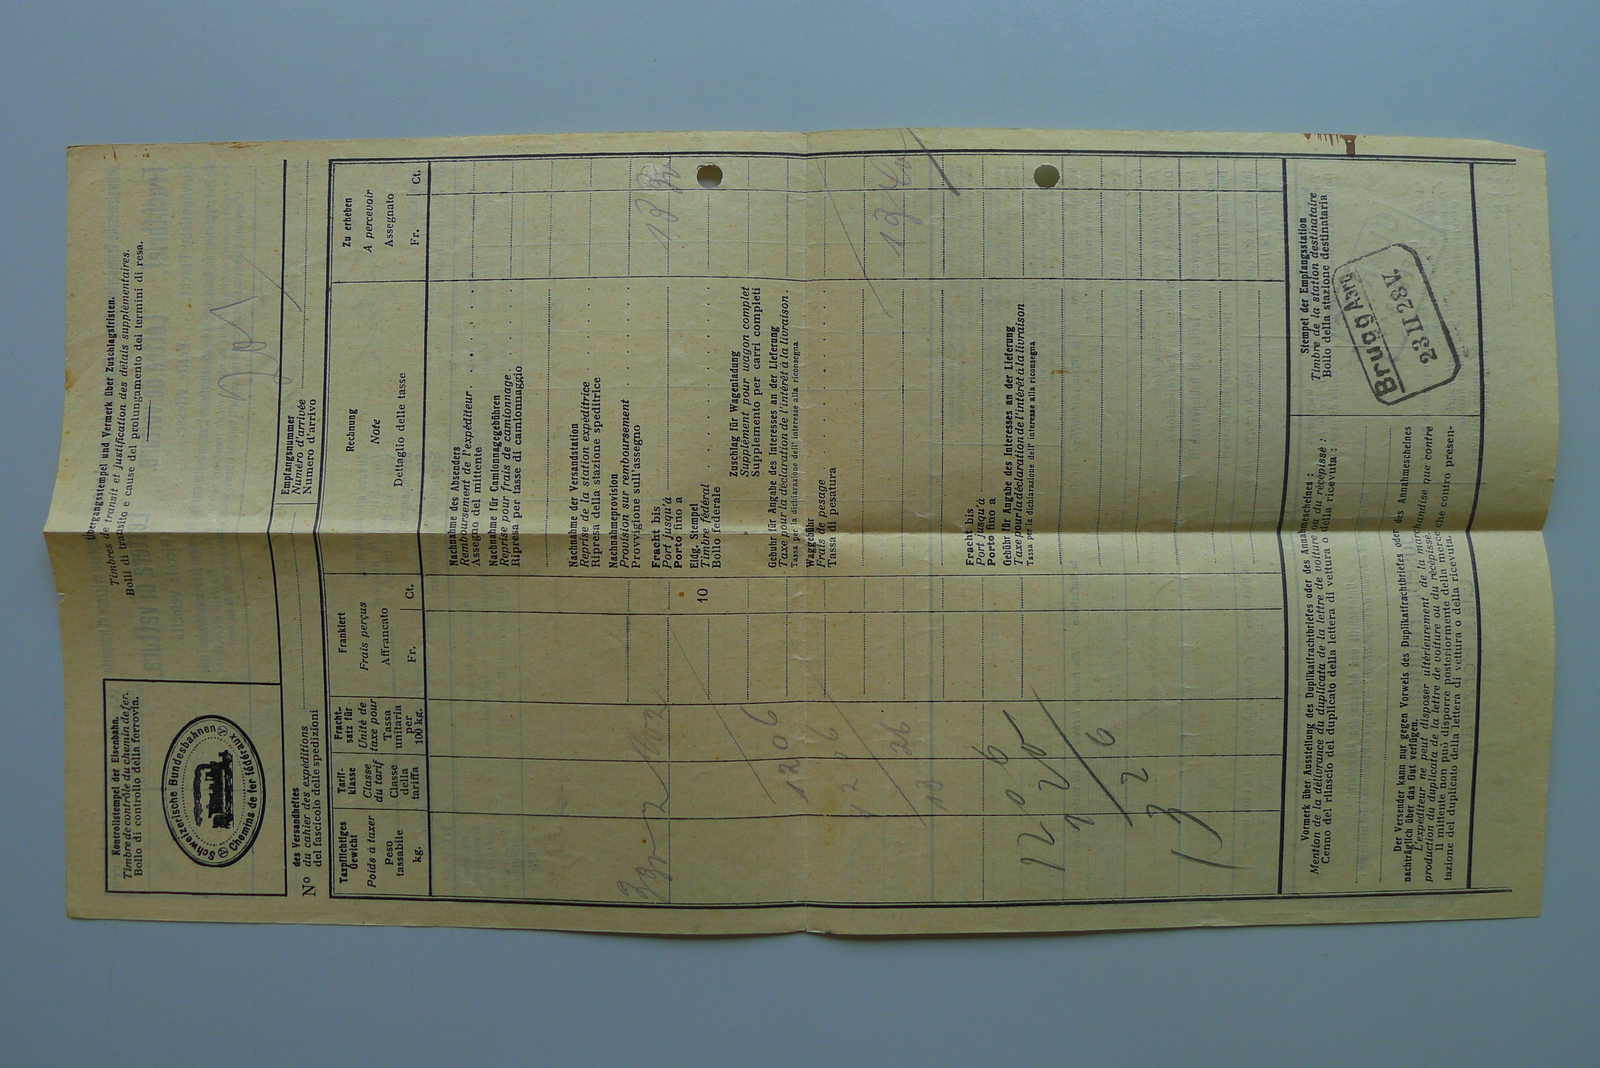 Übergangsstempel und Vermerk über Zuschlagsfristen.
Timbres de transit et justification des délais supplémentaires.
Bolli di transito e cause del prolungamento dei termini di resa.
Kontrollstempel der Eisenbahn.
Timbre de contrôle du chemin de fer.
Bollo di controllo della ferrovia.
Schweizerische Bundesbahnen
Chemins de fer fédéraux
Empfangsnummer
Numéro d'arrivée
Numero d'arrivo
des Versandheftes
No du cahier des expéditions
del fascicolo delle spedizioni
Taxpflichtiges Gewicht
Poids à taxer
Peso tassabile
kg.
Tarif-klasse
Classe du tarif
Classe della tariffa
Fracht-satz für
Unité de taxe pour
Tassa unitaria per
100 kg.
Frankiert
Frais perçus
Affrancato
Fr.
Ct.
Rechnung
Note
Dettaglio delle tasse
Zu erheben
A percevoir
Assegnato
Fr.
Ct.
Nachnahme des Absenders
Remboursement de l'expéditeur
Assegno del mittente
Nachnahme für Camionnagegebühren
Reprise pour frais de camionnage
Ripresa per tasse di camionnaggio
Nachnahme der Versandstation
Reprise de la station expéditrice
Ripresa della stazione speditrice
Nachnahmeprovision
Provision sur remboursement
Provvigione sull'assegno
Fracht bis
Port jusqu'à
Porto fino a
Eidg. Stempel
Timbre fédéral
Bollo federale
10
Zuschlag für Wagenladung
Supplément pour wagon complet
Supplemento per carri completi
Gebühr für Angabe des Interesses an der Lieferung
Taxe pour la déclaration de l'intérêt à la livraison
Tassa per la dichiarazione dell' interesse alla riconsegna
Waggebühr
Frais de pesage
Tassa di pesatura
1206
26
Fracht bis
Port jusqu'à
Porto fino a
Gebühr für Angabe des Interesses an der Lieferung
Taxe pour la déclaration de l'intérêt à la livraison
Tassa per la dichiarazione dell' interesse alla riconsegna
1206
1326
Vormerk über Ausstellung des Duplikatfrachtbriefes oder des Annahmescheines :
Mention de la délivrance du duplicata de la lettre de voiture ou du récépissé :
Cenno del rilascio del duplicato della lettera di vettura o della ricevuta :
Stempel der Empfangsstation
Timbre de la station destinataire
Bollo della stazione destinataria
Brugg Aarg
23 II 28 V.
Der Versender kann nur gegen Vorweis des Duplikatfrachtbriefes oder des Annahmescheines
nachträglich über das Gut verfügen.
L'expéditeur ne peut disposer ultérieurement de la marchandise que contre
production du duplicata de la lettre de voiture ou du récépissé.
Il mittente non può disporre posteriormente della merce che contro presen-
tazione del duplicato della lettera di vettura o della ricevuta.